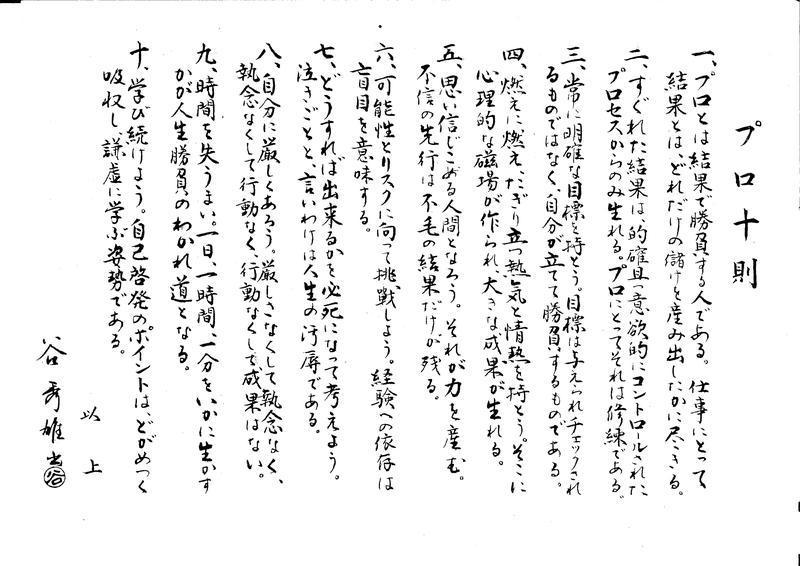 プロ十則
一、プロとは結果で勝負する人である。仕事にとって
結果とは、どれだけの儲けを産み出したかに尽きる。
二、すぐれた結果は、的確且つ意欲的にコントロールされた
プロセスからのみ生れる。プロにとってそれは修練である。
三、常に明確な目標を持とう。目標は与えられチェックされ
るものではなく、自分が立てて勝負するものである。
四、燃えに燃え、たぎり立つ熱気と情熱を持とう。そこに
心理的な磁場が作られ、大きな成果が生れる。
五、思い信じこめる人間となろう。それが力を産む。
不信の先行は不毛の結果だけが残る。
六、可能性とリスクに向って挑戦しよう。経験への依存は
盲目を意味する。
七、どうすれば出来るかを必死になって考えよう。
泣きごとと、言いわけは人生の汚辱である。
八、自分に厳しくあろう。厳しさなくして執念なく、
執念なくして行動なく、行動なくして成果はない。
九、時間を失うまい。一日、一時間、一分をいかに生かす
かが人生勝負のわかれ道となる。
十、学び続けよう。自己啓発のポイントは、どがめつく
吸収し、謙虚に学ぶ姿勢である。
以上
谷秀雄
谷